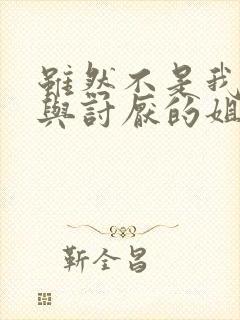 雖然不是我
與討厭的姐
靳全昌